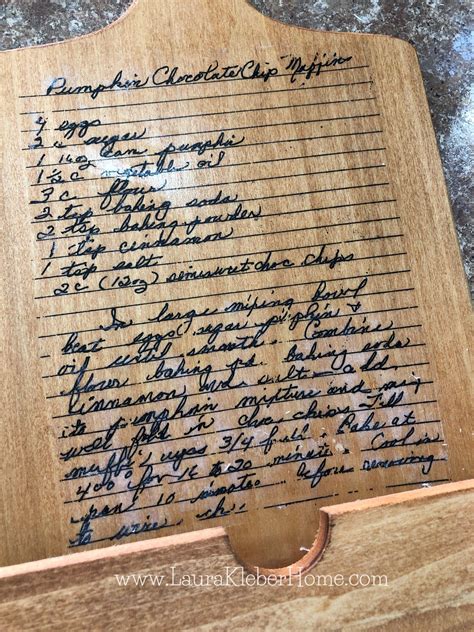 Pumpkin Chocolate Chip Muffins
4 eggs
2 c sugar
1 16oz can pumpkin
1 ½ c vegetable oil
3 c flour
2 tsp baking soda
2 tsp baking powder
1 tsp cinnamon
1 tsp salt
2c (12oz) semisweet choc chips
In large mixing bowl
beat eggs, sugar, pumpkin &
oil until smooth. Combine
flour, baking baking soda
cinnamon add
to pumpkin mixture and mix
well fold in choc chips Fill
3/4 full. Bake at
400 for 16 to 20 minutes. Cool in
pan 10 minutes before removing
to wire
www.LauraKleberHome.com